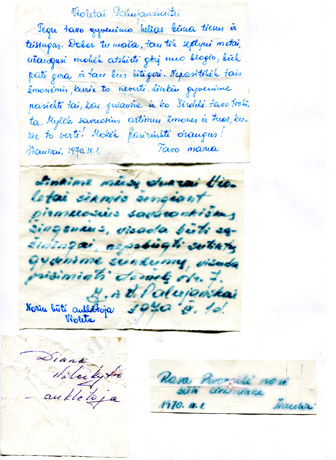 Violetai Palujanskaitei
Tegu tavo gyvenimo kelias būna tiesus ir
teisingas. Dabar tu maža, tau tik septyni metai,
užaugusi mokėk atskirti gėrį nuo blogio, būk
pati gera ir tau bus kiti geri. Nepasitikėk tais
žmonėmis, kurie to neverti. Linkiu gyvenime
pasiekti tai, kas gražu ir ko širdis
Mylėk savuosius artimus žmones ir tuos, ku-
rie to verti! Mokėk pasirinkti draugus!
Šiauliai, 1970.IX.1. Tavo mama
Linkime mūsų dukrai Vio-
letai sėkmės žengiant
pirmuosius savarankiškus
žingsnius, visada būti są-
žiningai, nepabūgti sutiktų
gyvenime sunkumų, visada
prisiminti
Palujanskai
1970 9. 1d.
Noriu būti auklėtoja
Violeta
Diana
auklėtoja
Rasa nori
būti
1970. IX.1. Šiauliai